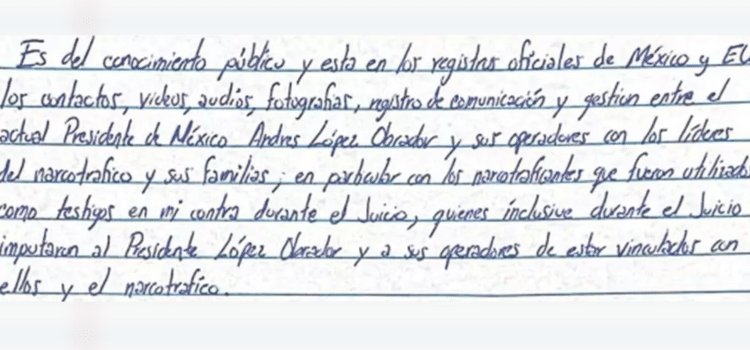 Es del conocimiento público y esta en los registros oficiales de México y EU
los contactos, videos, audios, fotografias, registro de comunicación y gestion entre el
actual Presidente de México Andres López Obrador y sus operadores con los líderes
del narcotrafico y sus familias; en particular con los narcotraficantes que fueron utilizados
como testigos en mi contra durante el Juicio, quienes inclusive durante el Juicio
imputaron al Presidente López Obrador y a sus operadores de estar vinculados con
ellos y el narcotrafico.